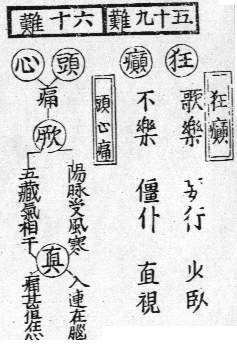 五十九難
狂癲
狂
歌樂
行
火臥
癲
不樂
僵仆
直視
六十難
頭心痛
頭
心
痛
厥
陽脉受風寒
入連在腦
真
五藏氣相干
痛甚但在心